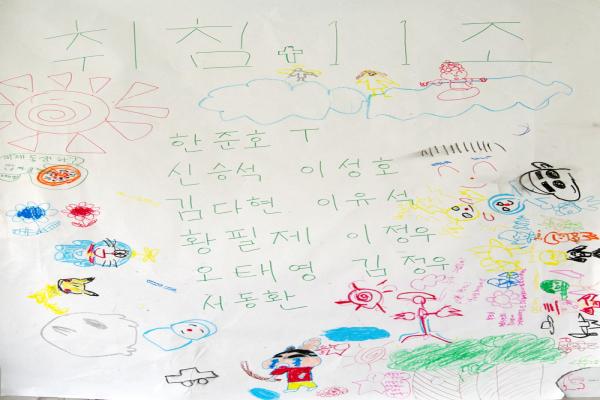 취침 11조
한준호 T
신승석 이성호
김다현 이유석
황필제 이정우
오태영 김정우
서동환